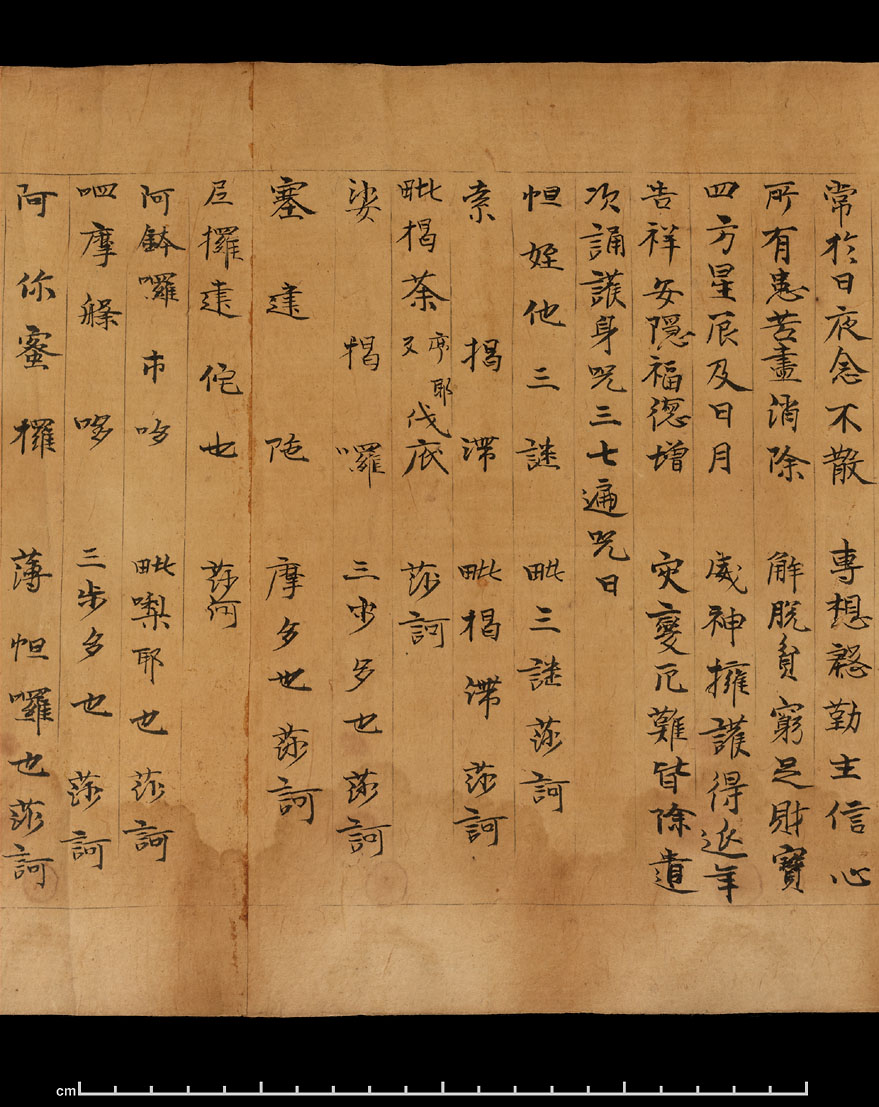 常於日夜念不散 專想慇勤主信心
所有患苦盡消除 解脫貧窮足財寶
四方星辰及日月 威神擁護得延年
告祥安隱福德增 灾變厄難皆除遣
次誦護身呪三七遍呪曰
怛姪他三謎 毗三謎莎訶
索揭滯 毗揭滯莎訶
毗揭茶 亦耶 又 伐底 莎訶
娑揭囉 三步多也莎訶
塞建陁 摩多也莎訶
尼攞建佗也 莎訶
阿鉢囉市哆 毗㗚耶也莎訶
呬摩哆 三步多也 莎訶
阿你蜜攞 薄怛囉也莎訶